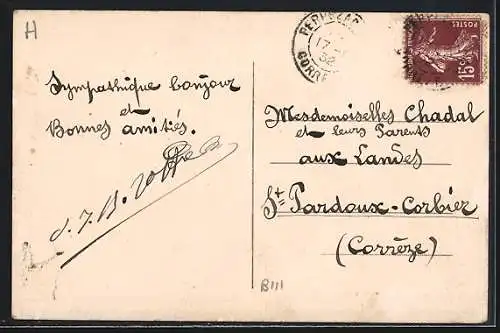 H
Sympathique bonjour
et
Bonnes amitiés.
PERPEZAC
17
32
CORRE
POSTES
15c
Mesdemoiselles Chadal
et leurs Parents
aux Landes
St Pardoux-Corbier
(Corrèze)
B111